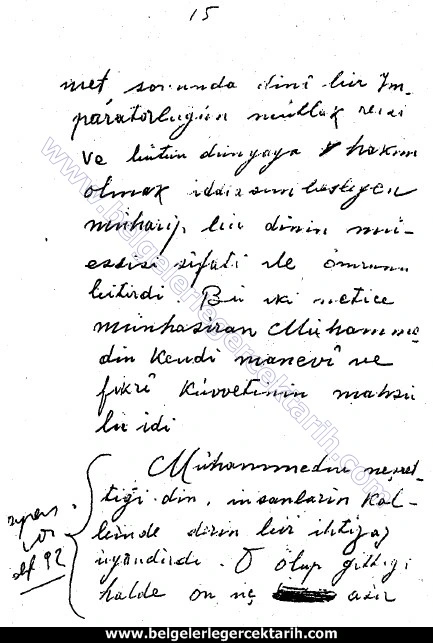 15
met sonunda dinî bir Im-
páratorlugun mutlak reisi
ve bütün dunyaya hakim
olmak iddiasını besliyen
muharip bir dinin mü-
essisi sifati ile ömrunu
bitirdi. Bu iki netice
munhasiran Muhamme
din kendi manevî ve
fikrî kuvvetinin mahsu
lu idi
Muhammedin neşret-
tigi din, insanlarin kal-
binde derin bir ihtizaz
uyandirdi. O ölup gittigi
halde on üç asir
92
www.belgelerlegercektarih.com
www.belgelerlegercektarih.com